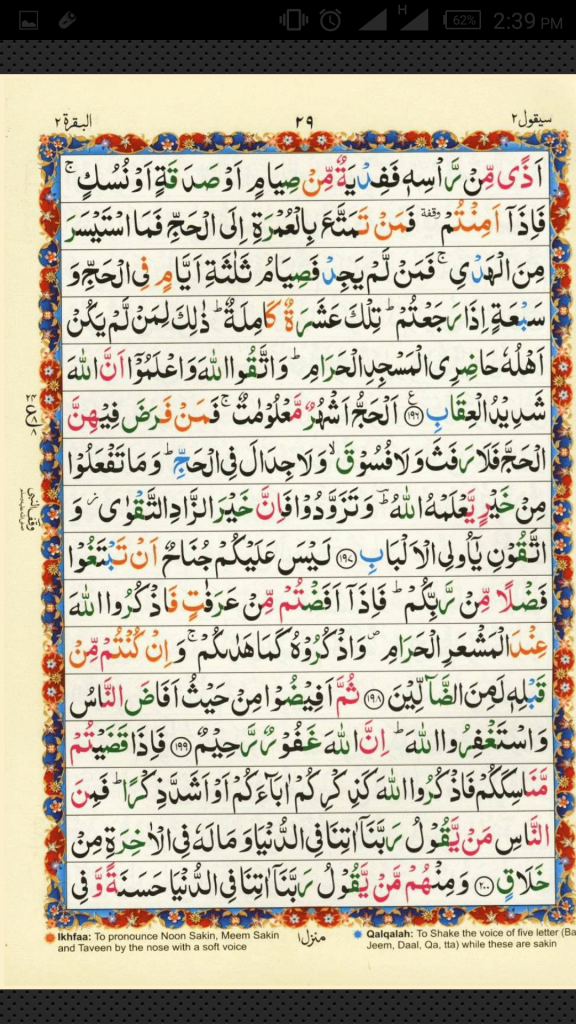 H 62% 2:39 PM
سيقول ٢ ٢٩ البقرة ٢
اَذًى مِّنۡ رَّاۡسِهٖ فَفِدۡيَةٌ مِّنۡ صِيَامٍ اَوۡ صَدَقَةٍ اَوۡ نُسُكٍ ۚ
فَاِذَاۤ اَمِنۡتُمۡ ٝ وقفة فَمَنۡ تَمَتَّعَ بِالۡعُمۡرَةِ اِلَى الۡحَجِّ فَمَا اسۡتَيۡسَرَ
مِنَ الۡهَدۡىِ ۚ فَمَنۡ لَّمۡ يَجِدۡ فَصِيَامُ ثَلٰثَةِ اَيَّامٍ فِى الۡحَجِّ وَ
سَبۡعَةٍ اِذَا رَجَعۡتُمۡ ؕ تِلۡكَ عَشَرَةٌ كَامِلَةٌ ؕ ذٰلِكَ لِمَنۡ لَّمۡ يَكُنۡ
اَهۡلُهٗ حَاضِرِى الۡمَسۡجِدِ الۡحَرَامِ ؕ وَاتَّقُوا اللّٰهَ وَاعۡلَمُوۡۤا اَنَّ اللّٰهَ
شَدِيۡدُ الۡعِقَابِ ﴿۱۹۶﴾ ع اَلۡحَجُّ اَشۡهُرٌ مَّعۡلُوۡمٰتٌ ۚ فَمَنۡ فَرَضَ فِيۡهِنَّ
الۡحَجَّ فَلَا رَفَثَ وَلَا فُسُوۡقَ ۙ وَلَا جِدَالَ فِى الۡحَجِّ ؕ وَمَا تَفۡعَلُوۡا
مِنۡ خَيۡرٍ يَّعۡلَمۡهُ اللّٰهُ ؕ وَتَزَوَّدُوۡا فَاِنَّ خَيۡرَ الزَّادِ التَّقۡوٰى وَ
اتَّقُوۡنِ يٰۤاُولِى الۡاَلۡبَابِ ﴿۱۹۷﴾ لَيۡسَ عَلَيۡكُمۡ جُنَاحٌ اَنۡ تَبۡتَغُوۡا
فَضۡلًا مِّنۡ رَّبِّكُمۡ ؕ فَاِذَاۤ اَفَضۡتُمۡ مِّنۡ عَرَفٰتٍ فَاذۡكُرُوا اللّٰهَ
عِنۡدَ الۡمَشۡعَرِ الۡحَرَامِ ۖ وَاذۡكُرُوۡهُ كَمَا هَدٰٮكُمۡ ۚ وَاِنۡ كُنۡتُمۡ مِّنۡ
قَبۡلِهٖ لَمِنَ الضَّآلِّيۡنَ ﴿۱۹۸﴾ ثُمَّ اَفِيۡضُوۡا مِنۡ حَيۡثُ اَفَاضَ النَّاسُ
وَاسۡتَغۡفِرُوا اللّٰهَ ؕ اِنَّ اللّٰهَ غَفُوۡرٌ رَّحِيۡمٌ ﴿۱۹۹﴾ فَاِذَا قَضَيۡتُمۡ
مَّنَاسِكَكُمۡ فَاذۡكُرُوا اللّٰهَ كَذِكۡرِكُمۡ اٰبَآءَكُمۡ اَوۡ اَشَدَّ ذِكۡرًا ؕ فَمِنَ
النَّاسِ مَنۡ يَّقُوۡلُ رَبَّنَاۤ اٰتِنَا فِى الدُّنۡيَا وَمَا لَهٗ فِى الۡاٰخِرَةِ مِنۡ
خَلَاقٍ ﴿۲۰۰﴾ وَمِنۡهُمۡ مَّنۡ يَّقُوۡلُ رَبَّنَاۤ اٰتِنَا فِى الدُّنۡيَا حَسَنَةً وَّفِى
Ikhfaa: To pronounce Noon Sakin, Meem Sakin
and Taveen by the nose with a soft voice
منزل ١
Qalqalah: To Shake the voice of five letter (Ba
Jeem, Daal, Qa, tta) while these are sakin